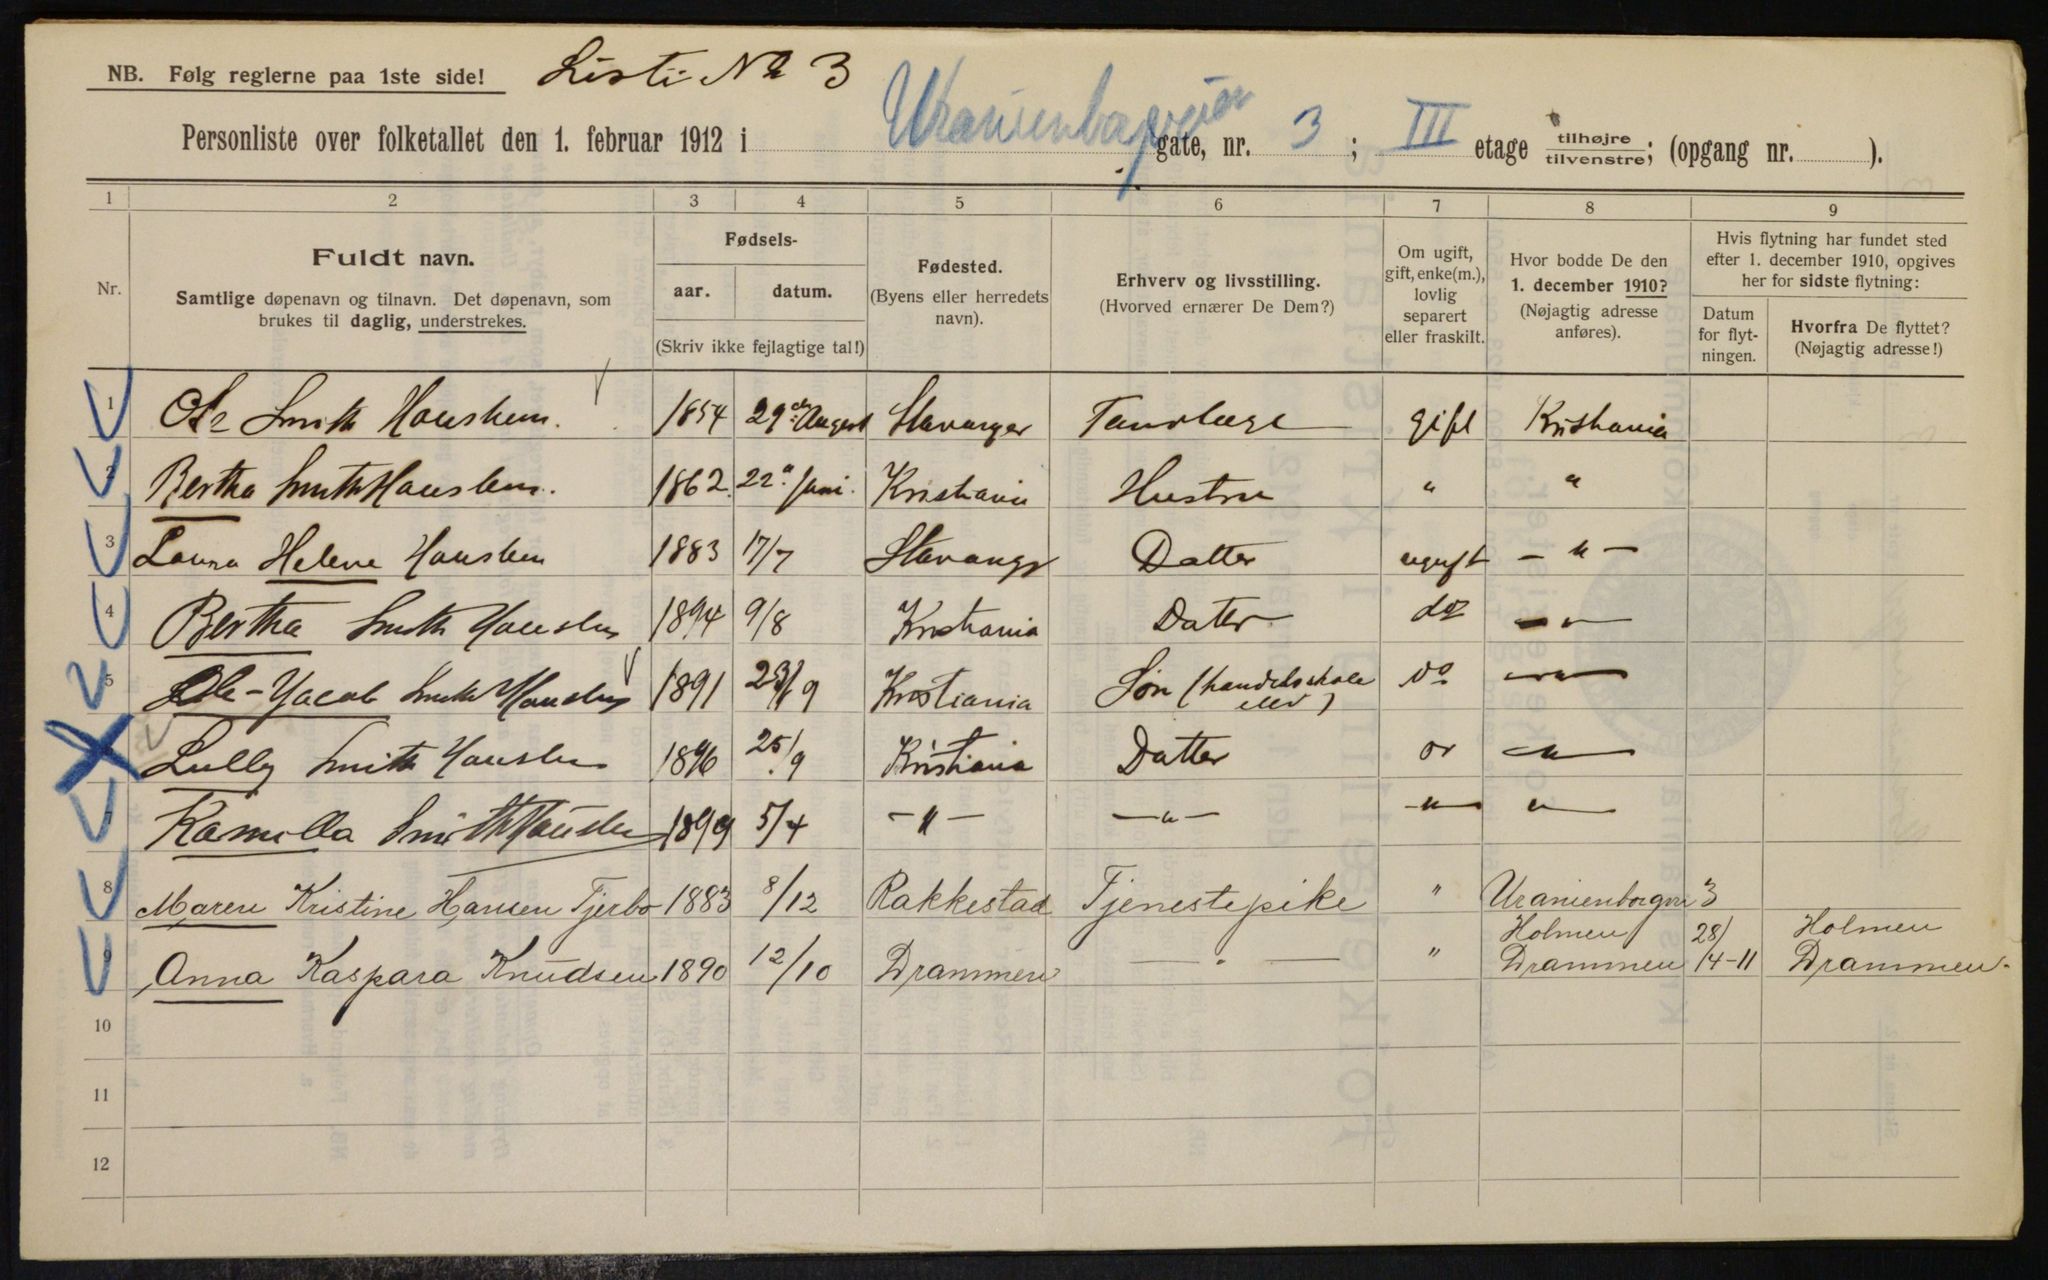 NB. Følg reglerne paa 1ste side! Liste No 3
Personliste over folketallet den 1. februar 1912 i Uranienborgveien gate, nr. 3; III etage tilhøjre tilvenstre; (opgang nr. ).
1 2 3 4 5 6 7 8 9
Nr.
Fuldt navn.
Samtlige døpenavn og tilnavn. Det døpenavn, som
brukes til daglig, understrekes.
Fødsels-
aar. datum.
(Skriv ikke fejlagtige tal!)
Fødested.
(Byens eller herredets
navn).
Erhverv og livsstilling.
(Hvorved ernærer De Dem?)
Om ugift,
gift, enke(m.),
lovlig
separert
eller fraskilt.
Hvor bodde De den
1. december 1910?
(Nøjagtig adresse
anføres).
Hvis flytning har fundet sted
efter 1. december 1910, opgives
her for sidste flytning:
Datum
for flyt-
ningen.
Hvorfra De flyttet?
(Nøjagtig adresse!)
1 Smith Housken. 1854 29de August Stavanger Tandlæge gift Kristiania
2 Bertha Smith Housken. 1862. 22a Juni. Kristiania Hustru " "
3 Laura Helene Housken 1883 17/7 Stavanger Datter ugift - " -
4 Bertha Smith Housken 1894 9/8 Kristiania Datter do - " -
5 Ole-Jacob Smith Housken 1891 /9 Kristiania Søn (handelsskole do - " -
elev)
Lully Smith Housken 1896 25/9 Kristiania Datter do - " -
7 Kamilla Smith Housken 1899 5/4 - " - - " - - " - "
8 Maren Kristine Hansen Tjerbo 1883 8/12 Rakkestad Tjenestepike " Uranienborgvn 3
9 Anna Kaspara Knudsen 1890 12/10 Drammen - " - " Holmen Drammen 28/ 14-11 Holmen Drammen.
10
11
12